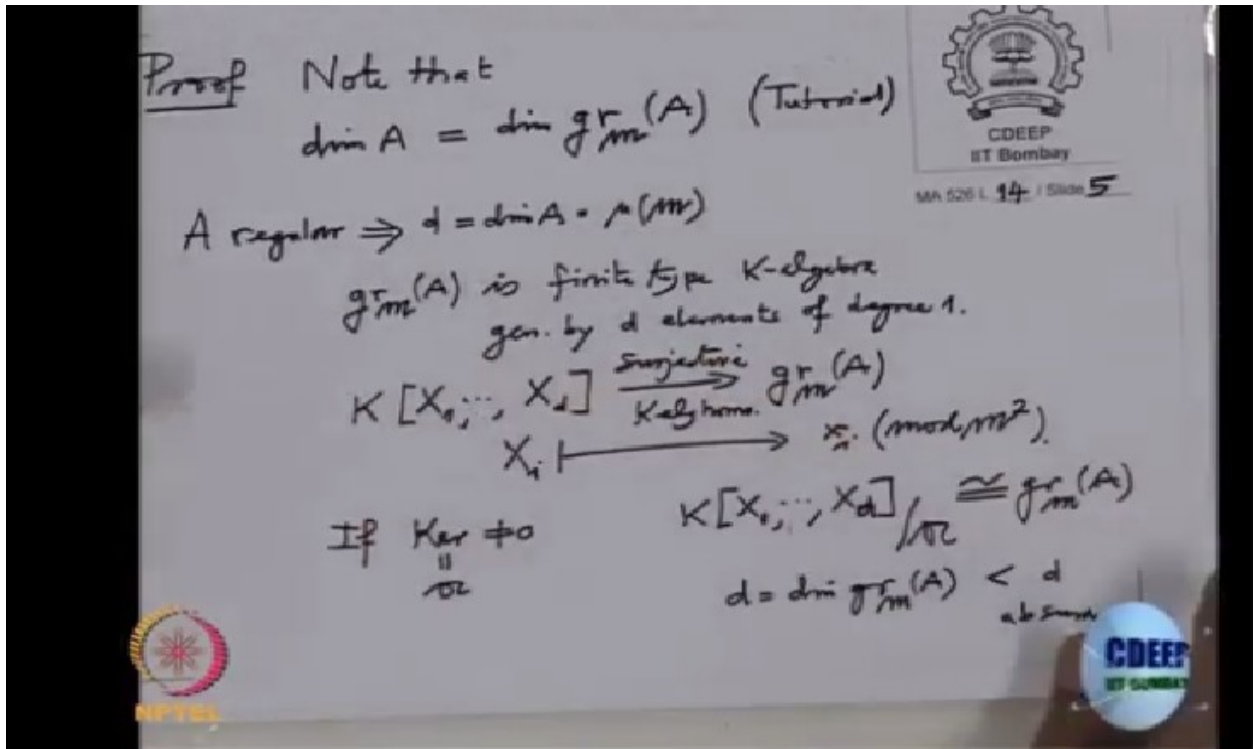 Proof Note that
dim A = dim gr_m(A) (Tutorial)
CDEEP
IIT Bombay
MA 526 L 14 / Slide 5
A regular ⇒ d = dim A = μ(m)
gr_m(A) is finite type K-algebra
gen. by d elements of degree 1.
K[X₁,…, X_d] surjective K-alg homo. → gr_m(A)
X_i ↦ x_i (mod m²).
If Ker ≠ 0
K[X₁,…, X_d]/𝔞 ≅ gr_m(A)
"
𝔞
d = dim gr_m(A) < d
absurd
CDEEP
IIT BOMBAY
NPTEL